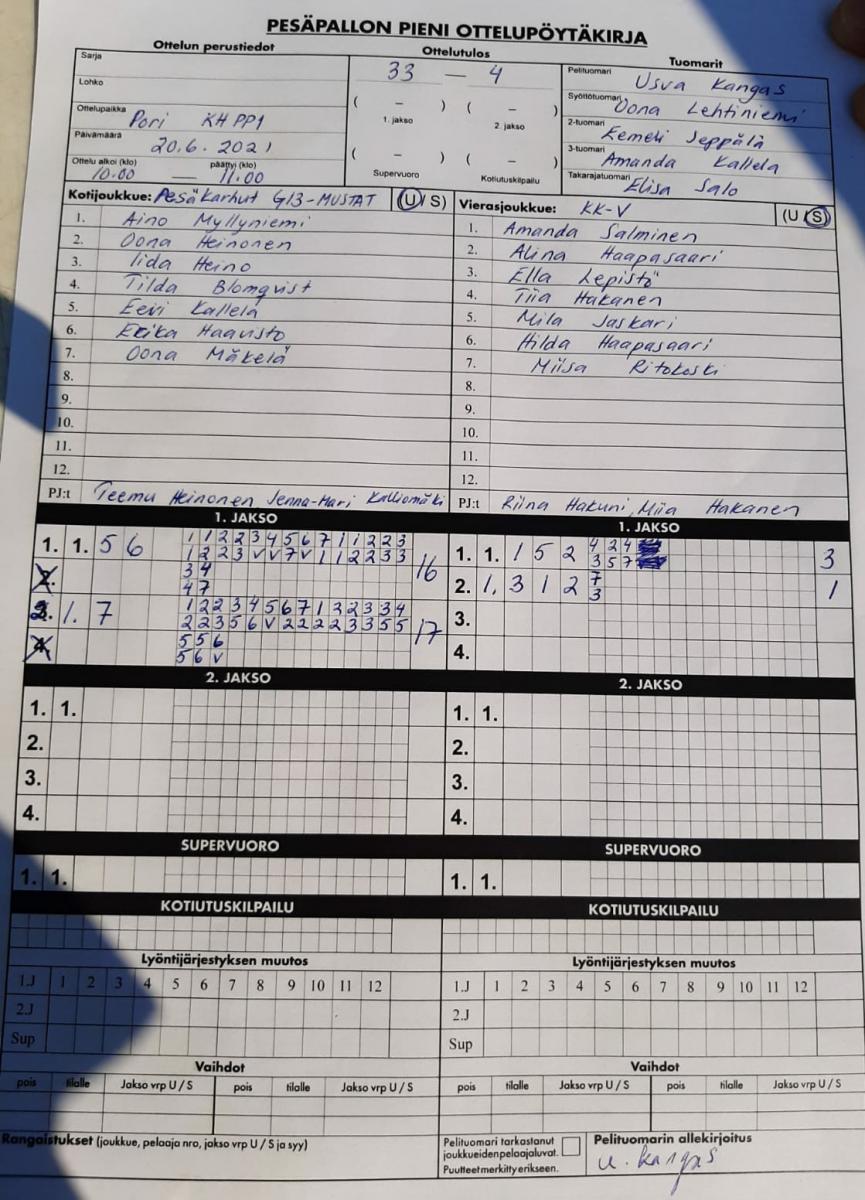 PESÄPALLON PIENI OTTELUPÖYTÄKIRJA
Ottelun perustiedot
Ottelutulos
Tuomarit
Sarja
Lohko
Ottelupaikka Pori KH PP1
Päivämäärä 20.6.2021
Ottelu alkoi (klo) päättyi (klo)
10.00 — 11.00
33 — 4
( – ) ( – )
1. jakso 2. jakso
( – ) ( – )
Supervuoro Kotiutuskilpailu
Pelituomari Usva Kangas
Syöttötuomari Oona Lehtiniemi
2-tuomari Kemeli Seppälä
3-tuomari Amanda Kallela
Takarajatuomari Elisa Salo
Kotijoukkue: Pesäkarhut G13-MUSTAT (U/S)
1. Aino Myllyniemi
2. Oona Heinonen
3. Iida Heino
4. Tilda Blomqvist
5. Eevi Kallela
6. Erika Haavisto
7. Oona Mäkelä
8.
9.
10.
11.
12.
PJ:t Teemu Heinonen Jenna-Mari Kalliomäki
Vierasjoukkue: KK-V (U/S)
1. Amanda Salminen
2. Alina Haapasaari
3. Ella Lepistö
4. Tiia Hakanen
5. Mila Jaskari
6. Hilda Haapasaari
7. Miisa Ritokoski
8.
9.
10.
11.
12.
PJ:t Riina Hakuni, Miia Hakanen
1. JAKSO
1. 1. 5 6 1 1 2 2 3 4 5 6 7 1 1 2 2 3
1 2 2 3 V V 7 V 1 1 2 2 3 3 16
2. 3 4
4 7
1. 7 1 2 2 3 4 5 6 7 1 2 2 3 3 4
2 2 3 5 6 V 2 2 2 2 3 3 5 5 17
4. 5 5 6
5 6 V
1. JAKSO
1. 1. 1 5 2 4 2 4
3 5 7 3
2. 1, 3 1 2 7
3 1
3.
4.
2. JAKSO
1. 1.
2.
3.
4.
2. JAKSO
1. 1.
2.
3.
4.
SUPERVUORO
1. 1.
SUPERVUORO
1. 1.
KOTIUTUSKILPAILU
KOTIUTUSKILPAILU
Lyöntijärjestyksen muutos
1.J 1 2 3 4 5 6 7 8 9 10 11 12
2.J
Sup
Lyöntijärjestyksen muutos
1.J 1 2 3 4 5 6 7 8 9 10 11 12
2.J
Sup
Vaihdot
pois tilalle Jakso vrp U / S pois tilalle Jakso vrp U / S
Vaihdot
pois tilalle Jakso vrp U / S pois tilalle Jakso vrp U / S
Rangaistukset (joukkue, pelaaja nro, jakso vrp U / S ja syy)
Pelituomari tarkastanut
joukkueiden pelaajaluvat.
Puutteet merkitty erikseen.
Pelituomarin allekirjoitus
U. Kangas